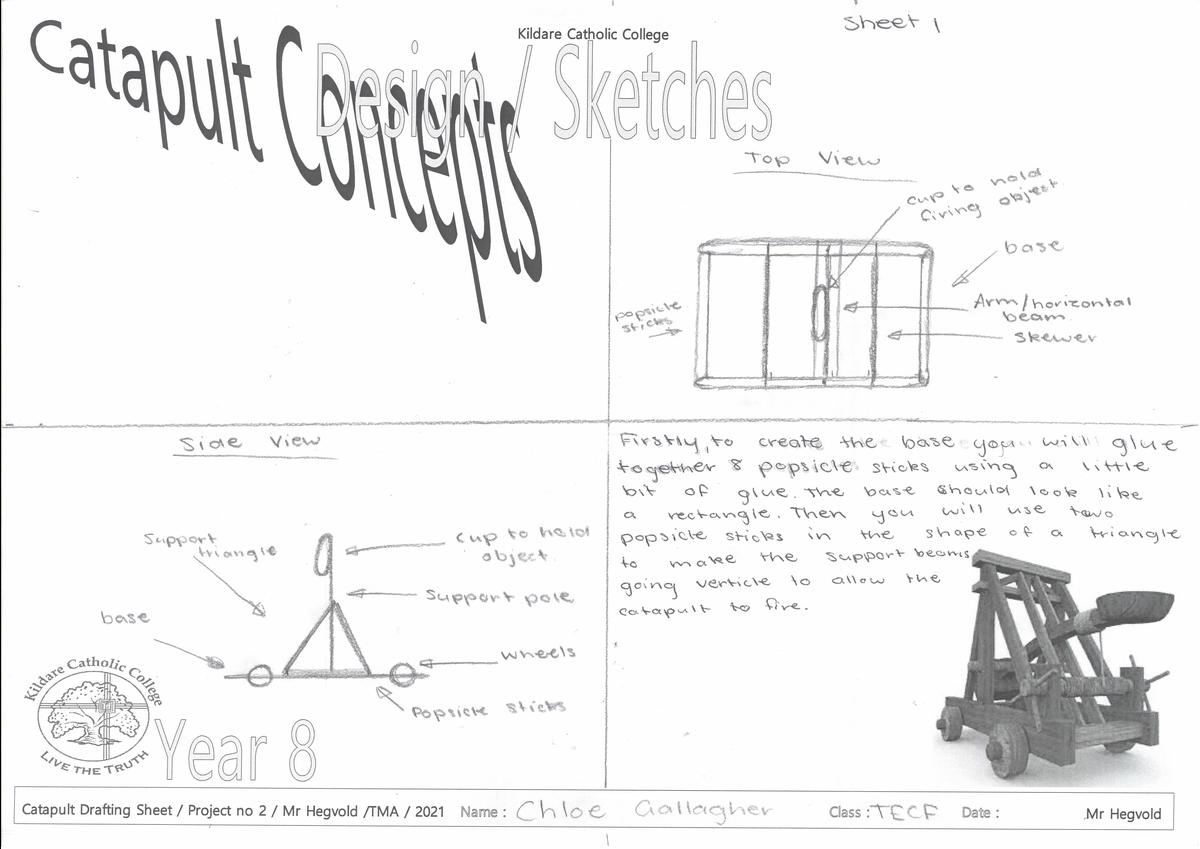 Sheet 1
Kildare Catholic College
Catapult Concepts
Design / Sketches
Top View
cup to hold
firing object
base
popsicle
sticks
Arm/horizontal
beam
skewer
Side View
Support
triangle
cup to hold
object.
Support pole
base
wheels
Popsicle sticks
Firstly, to create the base you will glue
together 8 popsicle sticks using a little
bit of glue. The base should look like
a rectangle. Then you will use two
popsicle sticks in the shape of a triangle
to make the support beams
going verticle to allow the
catapult to fire.
Kildare Catholic College
LIVE THE TRUTH
Year 8
Catapult Drafting Sheet / Project no 2 / Mr Hegvold /TMA / 2021 Name : Chloe Gallagher Class : TECF Date : Mr Hegvold